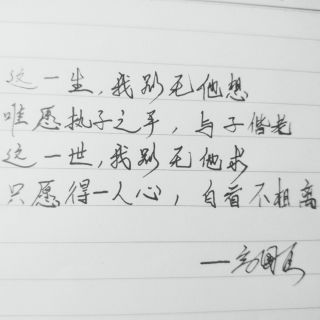 这一生,我别无他想
唯愿执子之手,与子偕老
这一世,我别无他求
只愿得一人心,白首不相离